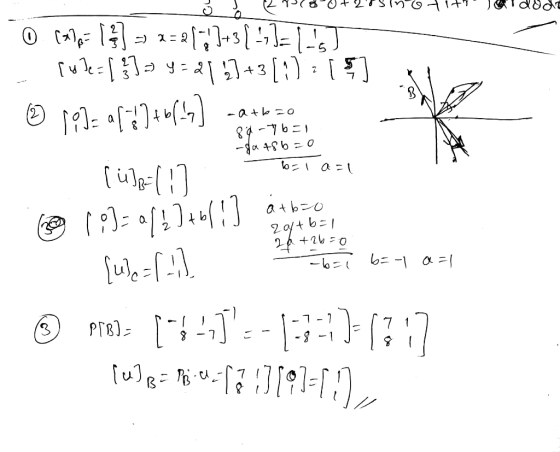 ① [x]_B = [2 3] ⇒ x = 2[-1 8] + 3[1 -7] = [1 -5]
[y]_C = [2 3] ⇒ y = 2[1 2] + 3[1 1] = [5 7]
② [0 1] = a[-1 8] + b[1 -7]
-a+b=0
8a-7b=1
-8a+8b=0
b=1 a=1
[u]_B = [1 1]
B
[0 1] = a[1 2] + b[1 1]
a+b=0
2a+b=1
2a+2b=0
-b=1 b=-1 a=1
[u]_C = [1 -1].
③ P[B] = [-1 1 8 -7]^-1 = -[-7 -1 -8 -1] = [7 1 8 1]
[u]_B = P_B · u = [7 1 8 1][0 1] = [1 1]